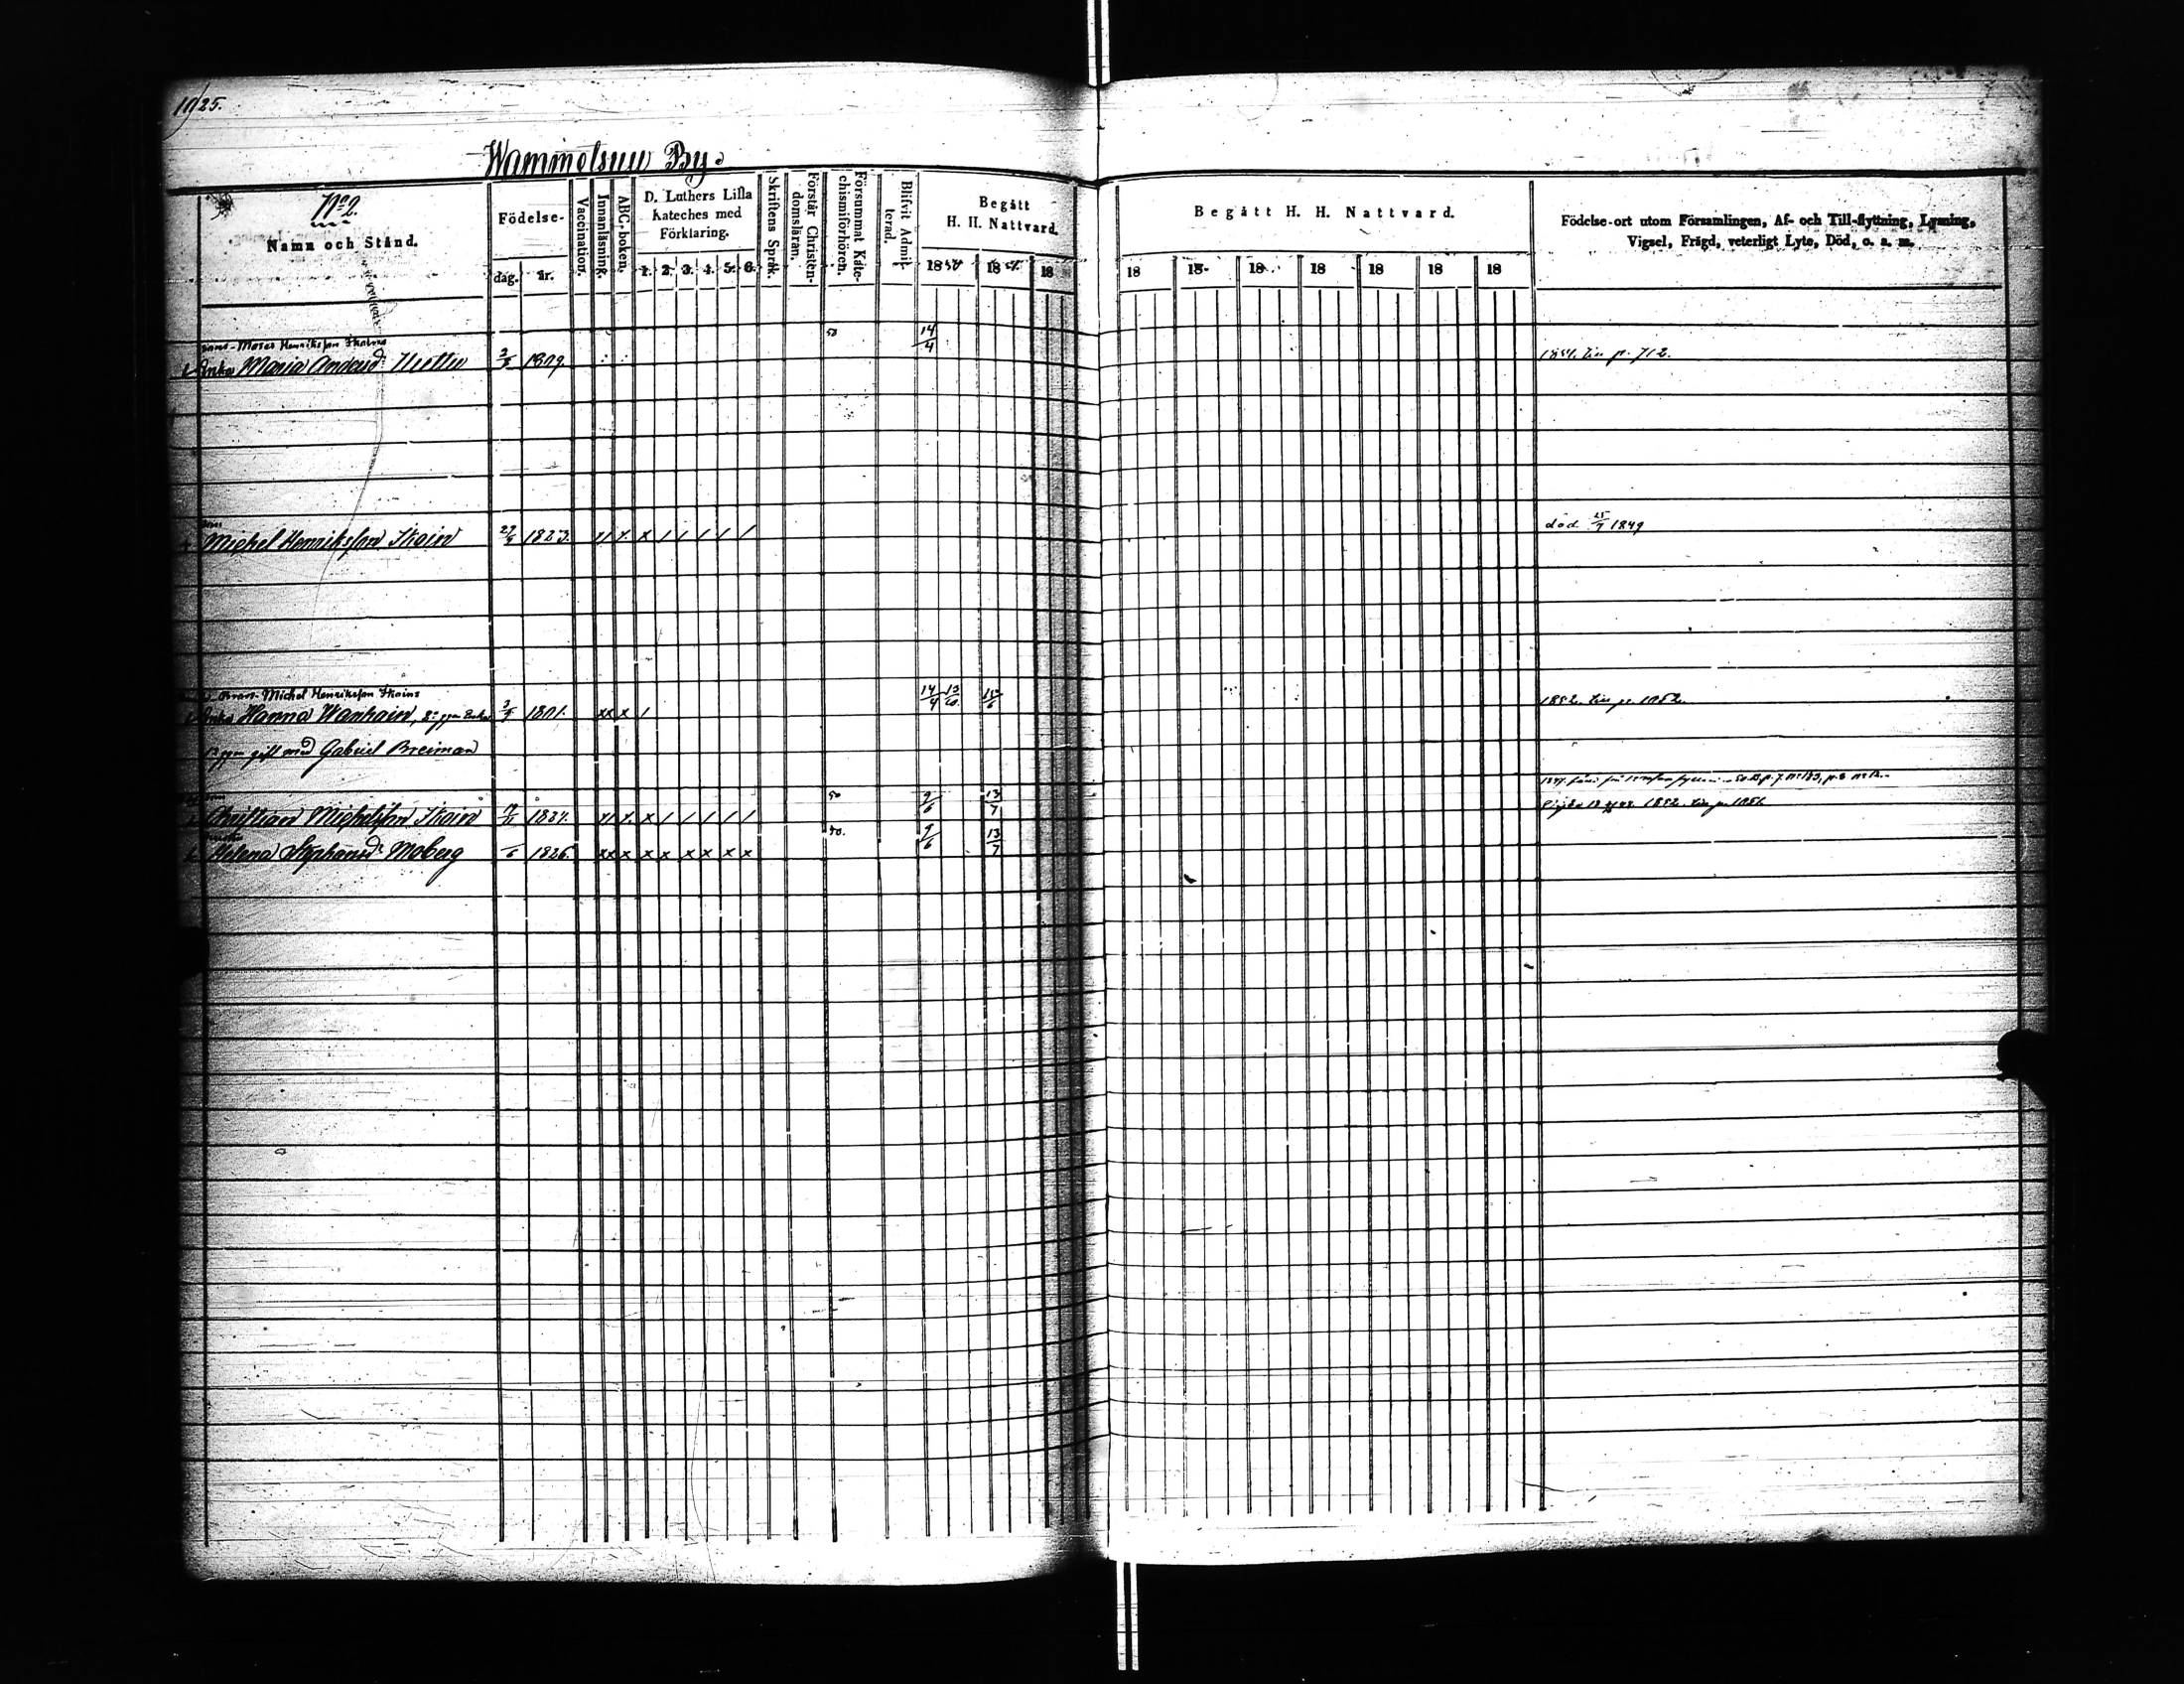 1025.
Wammelsuu By.
No 2.
Namn och Stånd.
Födelse-
dag. år.
Vaccination.
Innanläsning.
ABC-boken.
D. Luthers Lilla
Kateches med
Förklaring.
1. 2. 3. 4. 5. 6.
Skriftens Språk.
Förstår Christen-
domsläran.
Försummat Kate-
chismiförhören.
Blifvit Admit-
terad.
Begått
H. H. Nattvard.
18 50 18 51. 18
Begått H. H. Nattvard.
18 18 18 18 18 18 18
Födelse-ort utom Församlingen, Af- och Till-flyttning, Lysning,
Vigsel, Frägd, veterligt Lyte, Död, o. s. m.
Moses Henriksson Skoins
Enka Maria Andersd: 1809. 50 14/4 1851. p. 712.
Michel Henriksson Skoin 27/8 1823. x / / / / / död 25/7 1849
Michel Henriksson Skoins
Enka Hanna Wanhain, 2: ggn Enka 3/9 1801. xx x / 14/4 13/10 1852. p. 1052.
ggn gift med Gabriel Breiman
Christian Michelsson Skoin 1824. x / / / / / 50 9/6 13/7 1852. p. 1051.
Helena Stephansd: Moberg /6 1826. xx x x x x x x x 50. 9/6 13/7